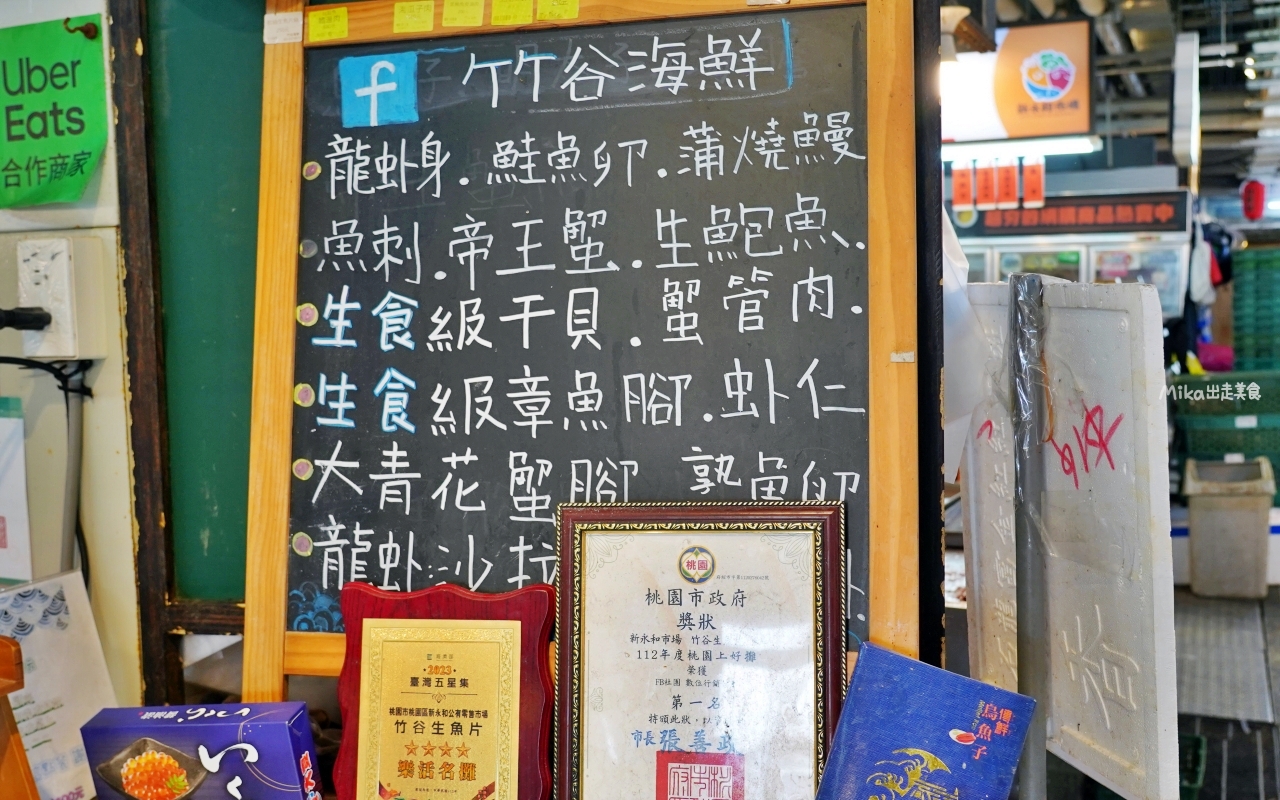 Uber
Eats
合作商家
f 竹谷海鮮
龍虾身.鮭魚卵.蒲燒鰻
魚刺.帝王蟹.生鮑魚.
生食級干貝.蟹管肉.
生食級章魚腳.虾仁
大青花蟹腳 熟魚卵
龍虾沙拉
桃園
桃園市政府
獎狀
新永和市場 竹谷生
112年度桃園上好攤
榮獲
FB社團 數位行銷
第一名
特頒此狀,以
市長 張善政
2023
臺灣五星集
桃園市桃園區新永和公有零售市場
竹谷生魚片
★★★★
樂活名攤
いく
烏魚子
Mika出走美食